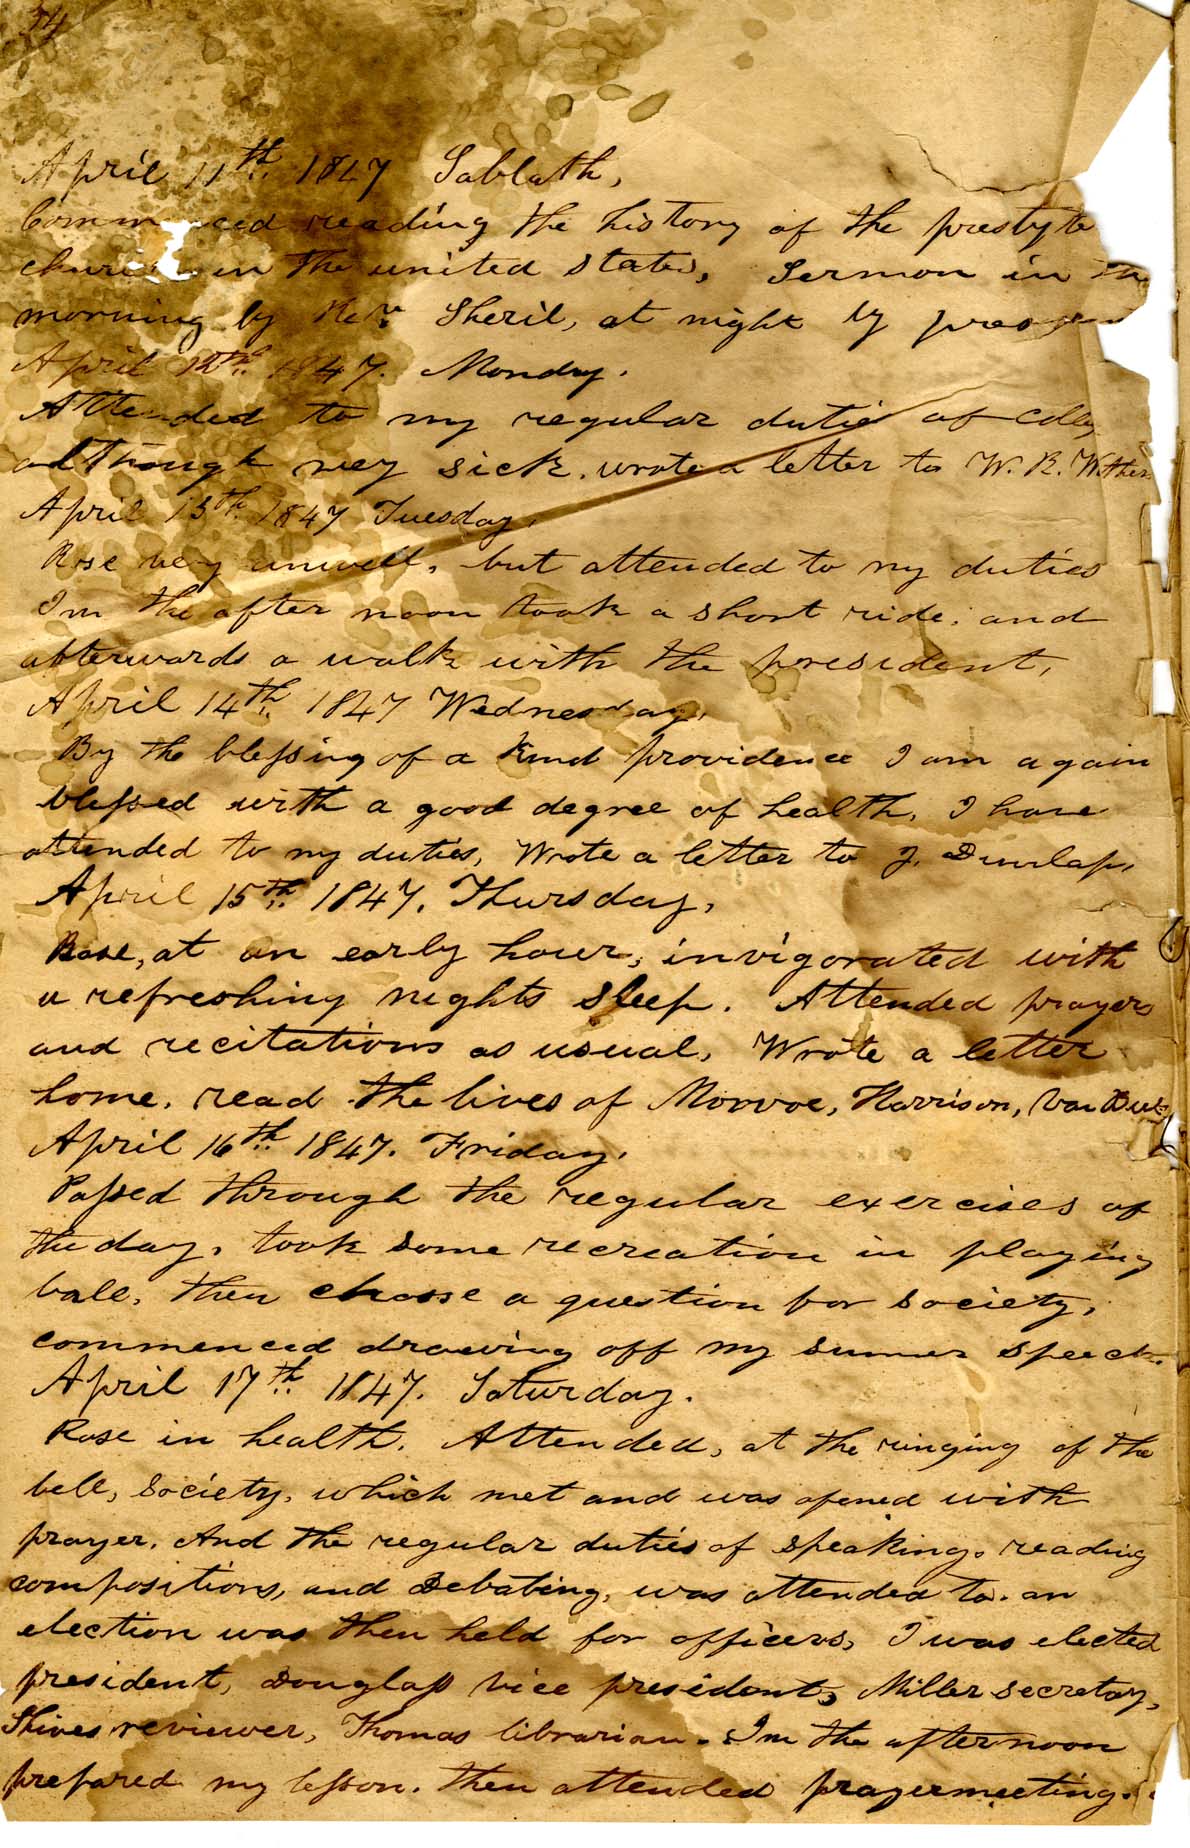 74
April 11th. 1847 Sabbath,
Commenced reading the history of the presbyte
church in the united states, Sermon in th
morning by Rev. Sheril, at night by
April 12th. 1847. Monday.
Attended to my regular dutie of Colleg
although very sick. wrote a letter to W. R. Wither
April 13th. 1847 Tuesday,
Rose very unwell, but attended to my duties
In the after noon took a short ride, and
afterwards a walk with the president,
April 14th. 1847 Wednesday,
By the blessing of a kind providence I am again
blessed with a good degree of health, I have
attended to my duties, Wrote a letter to J. Dunlap,
April 15th. 1847, Thursday,
Rose, at an early hour, invigorated with
a refreshing nights sleep. Attended prayers
and recitations as usual, Wrote a letter
home, read the lives of Monroe, Harrison, Van Bure
April 16th 1847. Friday.
Passed through the regular exercises of
the day, took some recreation in playing
ball, then choose a question for society,
commenced drawing off my summer speech.
April 17th. 1847. Saturday.
Rose in health. Attended, at the ringing of the
bell, Society, which met and was opened with
prayer. And the regular duties of speaking, reading
compositions, and Debating, was attended to. an
election was then held for officers, I was elected
president, Douglass vice president, Miller secretary,
Shives reviewer, Thomas librarian. In the afternoon
prepared my lesson. then attended prayermeeting.